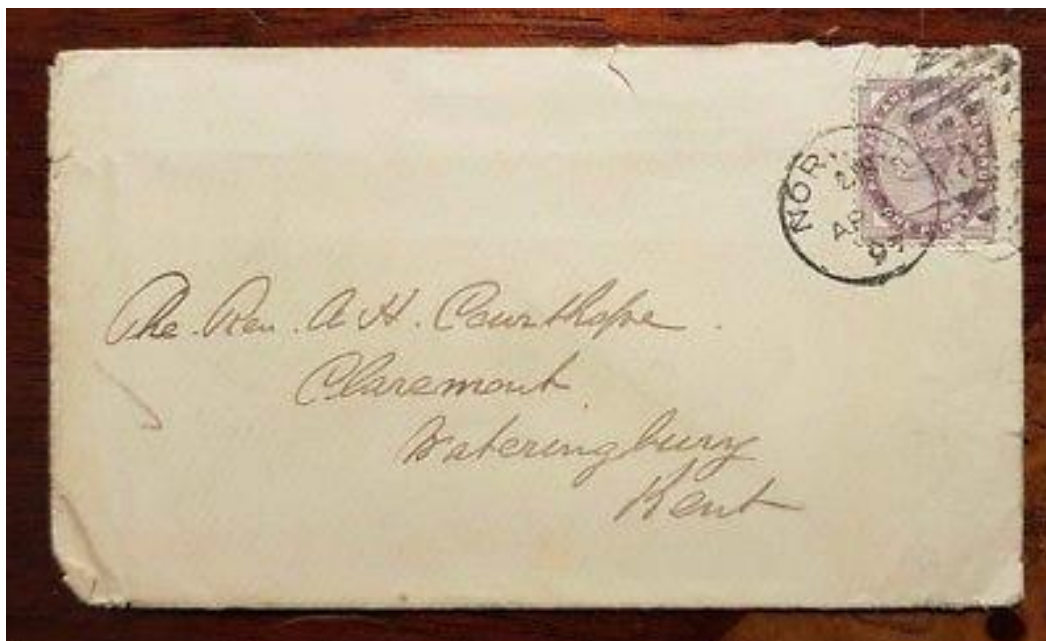 NOR
AP
The Rev. A H. Courthope.
Claremont.
Wateringbury
Kent